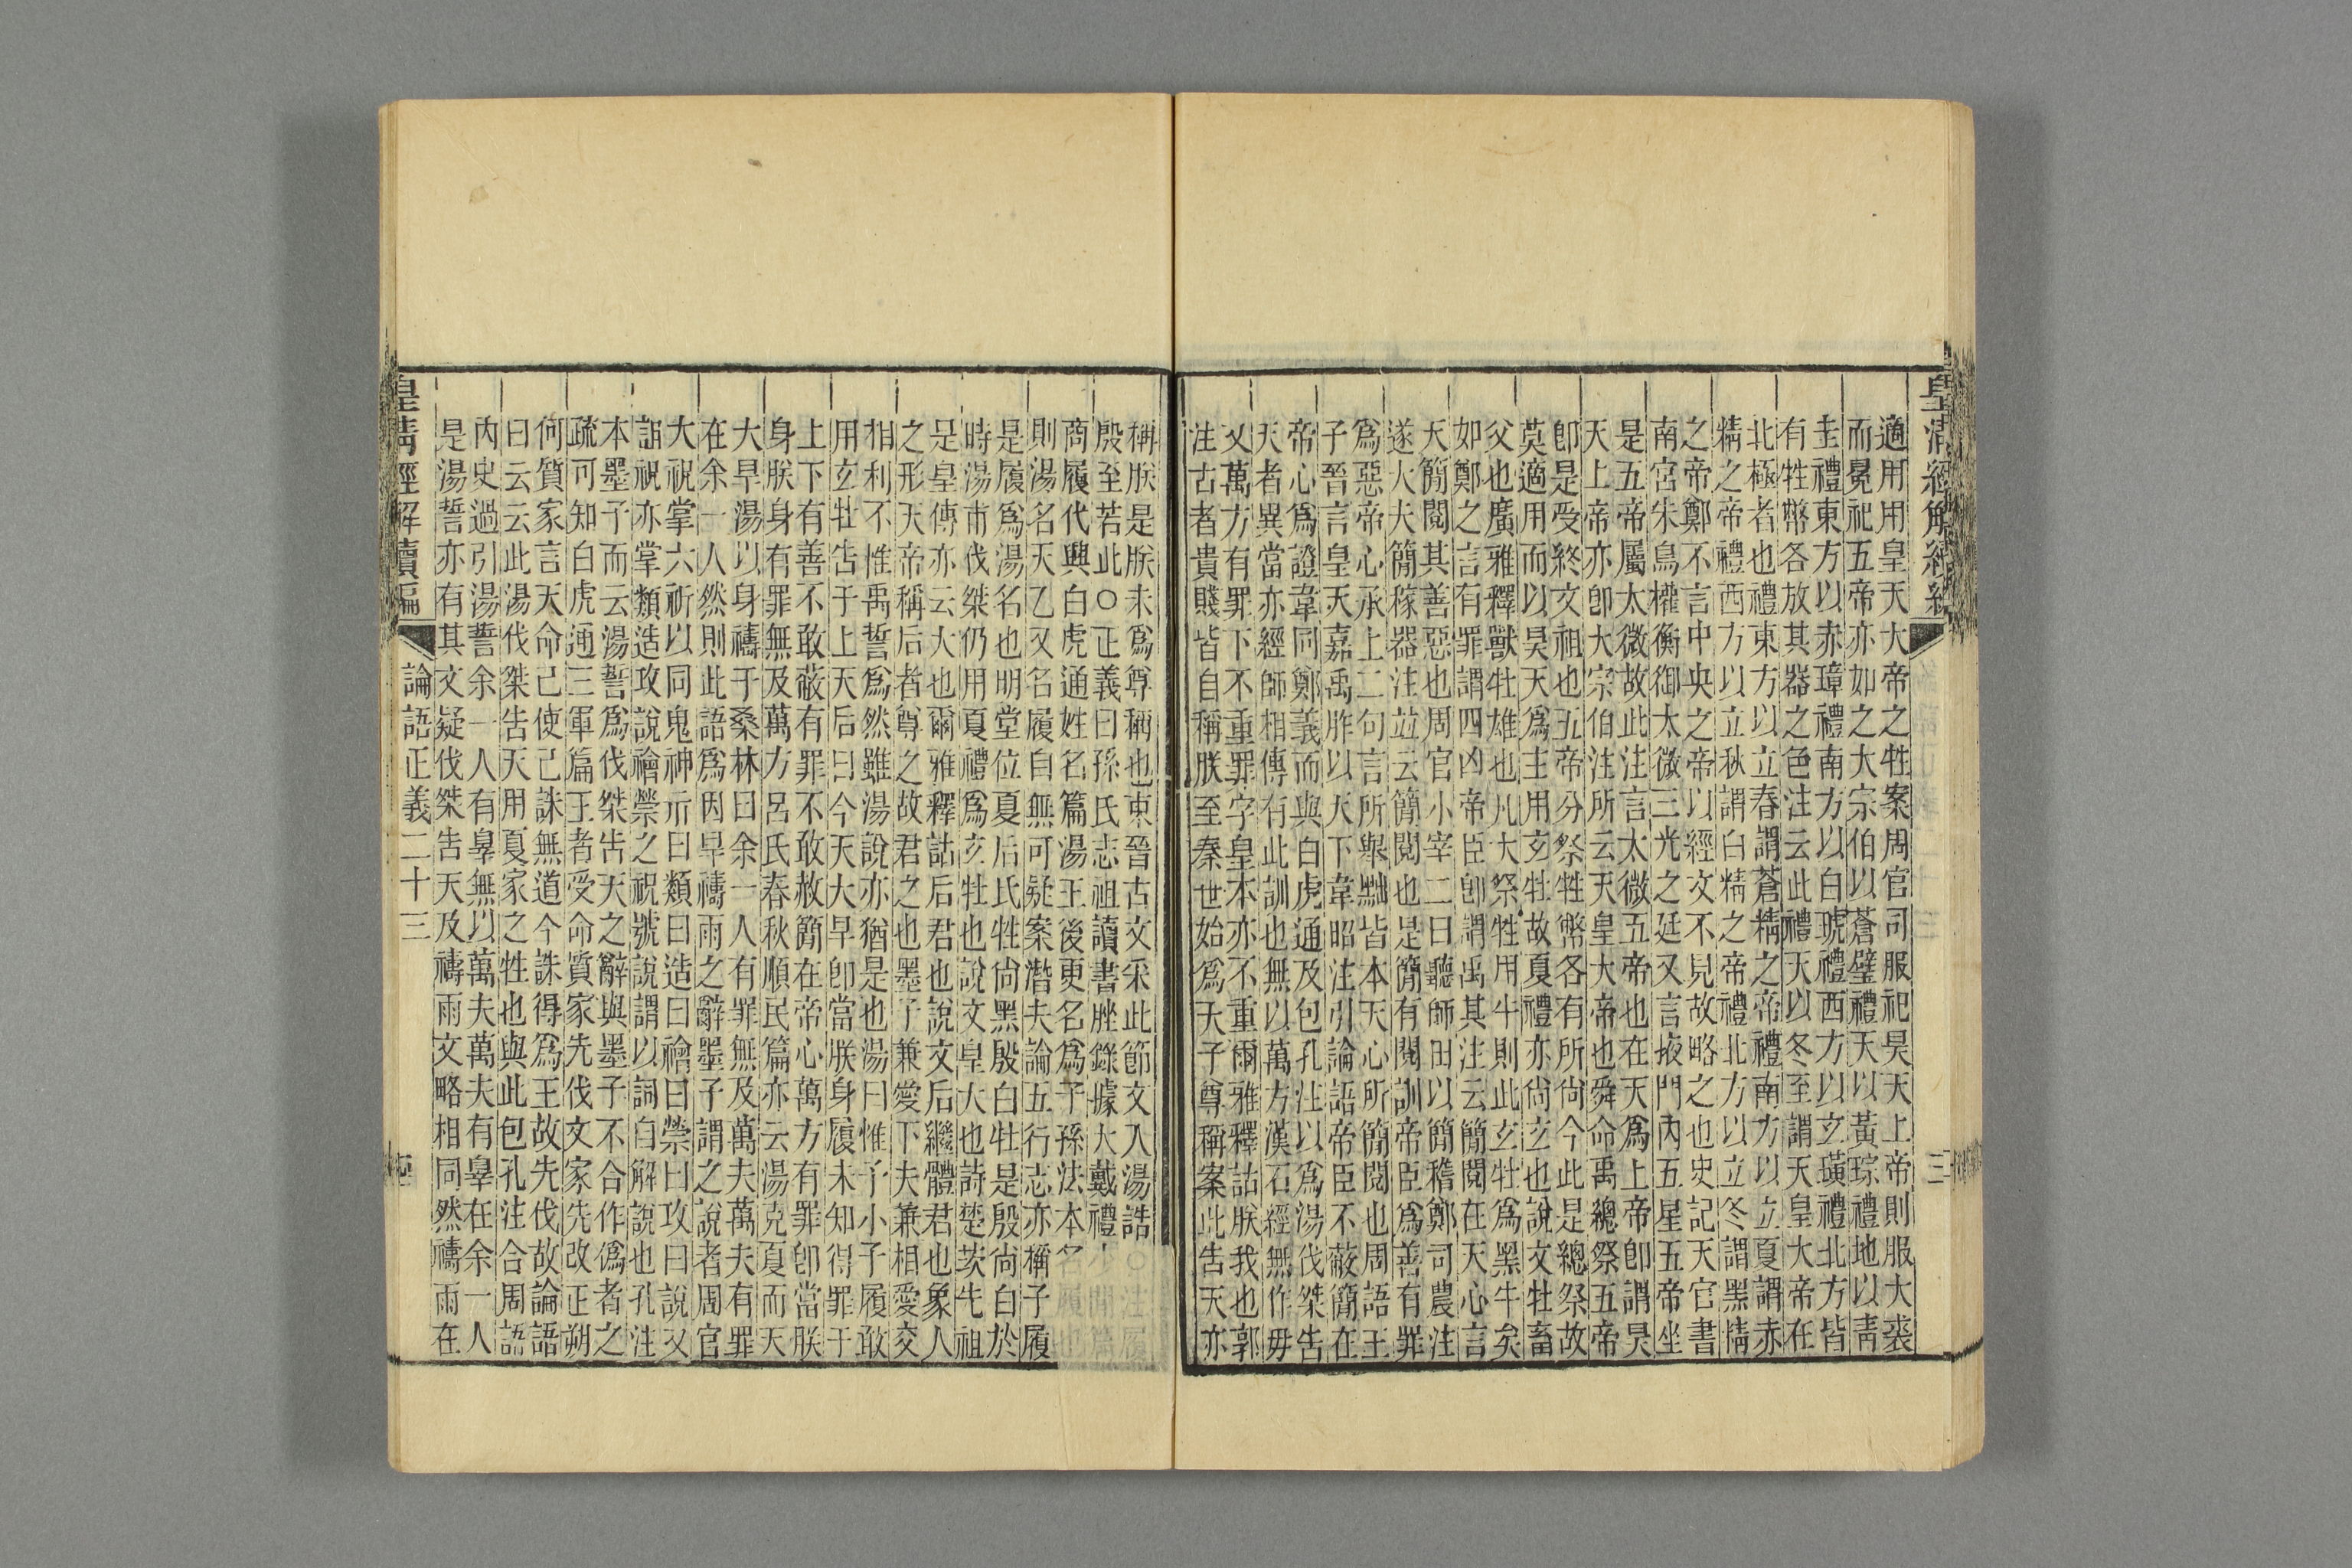 適用用皇天大帝之牲案周官司服祀昊天上帝則服大裘
而冕祀五帝亦如之大宗伯以蒼璧禮天以黃琮禮地以青
圭禮東方以赤璋禮南方以白琥禮西方以玄璜禮北方皆
有牲幣各放其器之色注云此禮天以冬至謂天皇大帝在
北極者也禮東方以立春謂蒼精之帝禮南方以立夏謂赤
精之帝禮西方以立秋謂白精之帝禮北方以立冬謂黑精
之帝鄭不言中央之帝以經文不見故略之也史記天官書
南宮朱鳥權衡御太微三光之廷又言掖門內五星五帝坐
是五帝屬太微故此注言太微五帝也在天爲上帝卽謂昊
天上帝亦卽大宗伯注所云天皇大帝也舜命禹總祭五帝
卽是受終文祖也五帝分祭牲幣各有所尚今此是總祭故
莫適用而以昊天爲主用玄牡故夏禮亦尚玄也說文牡畜
父也廣雅釋獸牡雄也凡大祭牲用牛則此玄牡爲黑牛矣
如鄭之言有罪謂四凶帝臣卽謂禹其注云簡閱在天心言
天簡閱其善惡也周官小宰二曰聽師田以簡稽鄭司農注
遂人大夫簡稼器注竝云簡閱也是簡有閱訓帝臣爲善有罪
爲惡帝心承上二句言所舉黜皆本天心所簡閱也周語王
子晉言皇天嘉禹胙以天下韋昭注引論語帝臣不蔽簡在
帝心爲證韋同鄭義而與白虎通及包孔注以爲湯伐桀告
天者異當亦經師相傳有此訓也無以萬方漢石經無作毋
又萬方有罪下不重罪字皇本亦不重爾雅釋詁朕我也郭
注古者貴賤皆自稱朕至秦世始爲天子尊稱案此告天亦
稱朕是朕未爲尊稱也東晉古文采此節文入湯誥○注履
殷至若此○正義曰孫氏志祖讀書脞錄據大戴禮少閒篇
商履代興白虎通姓名篇湯王後更名爲子孫法本名履也
則湯名天乙又名履自無可疑案潛夫論五行志亦稱子履
是履爲湯名也明堂位夏后氏牲尚黑殷白牡是殷尚白於
時湯甫伐桀仍用夏禮爲玄牡也說文皇大也詩楚茨先祖
是皇傳亦云大也爾雅釋詁后君也說文后繼體君也象人
之形天帝稱后者尊之故君之也墨子兼愛下夫兼相愛交
相利不惟禹誓爲然雖湯說亦猶是也湯曰惟予小子履敢
用玄牡告于上天后曰今天大旱卽當朕身履未知得罪于
上下有善不敢蔽有罪不敢赦簡在帝心萬方有罪卽當朕
身朕身有罪無及萬方呂氏春秋順民篇亦云湯克夏而天
大旱湯以身禱于桑林曰余一人有罪無及萬夫萬夫有罪
在余一人然則此語爲因旱禱雨之辭墨子謂之說者周官
大祝掌六祈以同鬼神示曰類曰造曰禬曰禜曰攻曰說又
詛祝亦掌類造攻說禬禜之祝號說謂以詞自解說也孔注
本墨子而云湯誓爲伐桀告天之辭與墨子不合作僞者之
疏可知白虎通三軍篇王者受命質家先伐文家先改正朔
何質家言天命己使己誅無道今誅得爲王故先伐故論語
曰云云此湯伐桀告天用夏家之牲也與此包孔注合周語
內史過引湯誓余一人有辠無以萬夫萬夫有辠在余一人
是湯誓亦有其文疑伐桀告天及禱雨文略相同然禱雨在
皇清經解續編
論語正義二十三